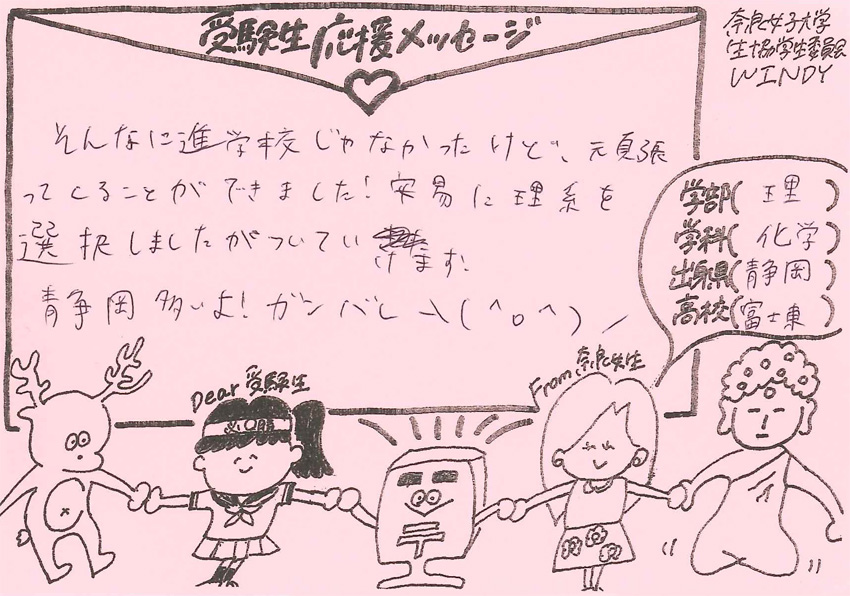 受験生応援メッセージ
奈良女子大学
生協学生委員会
WINDY
そんなに進学校じゃなかったけど、頑張
ってくることができました!安易に理系を
選択しましたがついてい
けます!
静岡多いよ!ガンバレ \(^o^)/
学部(理)
学科(化学)
出身県(静岡)
高校(富士東)
Dear 受験生
From 奈良女生
必勝
〒